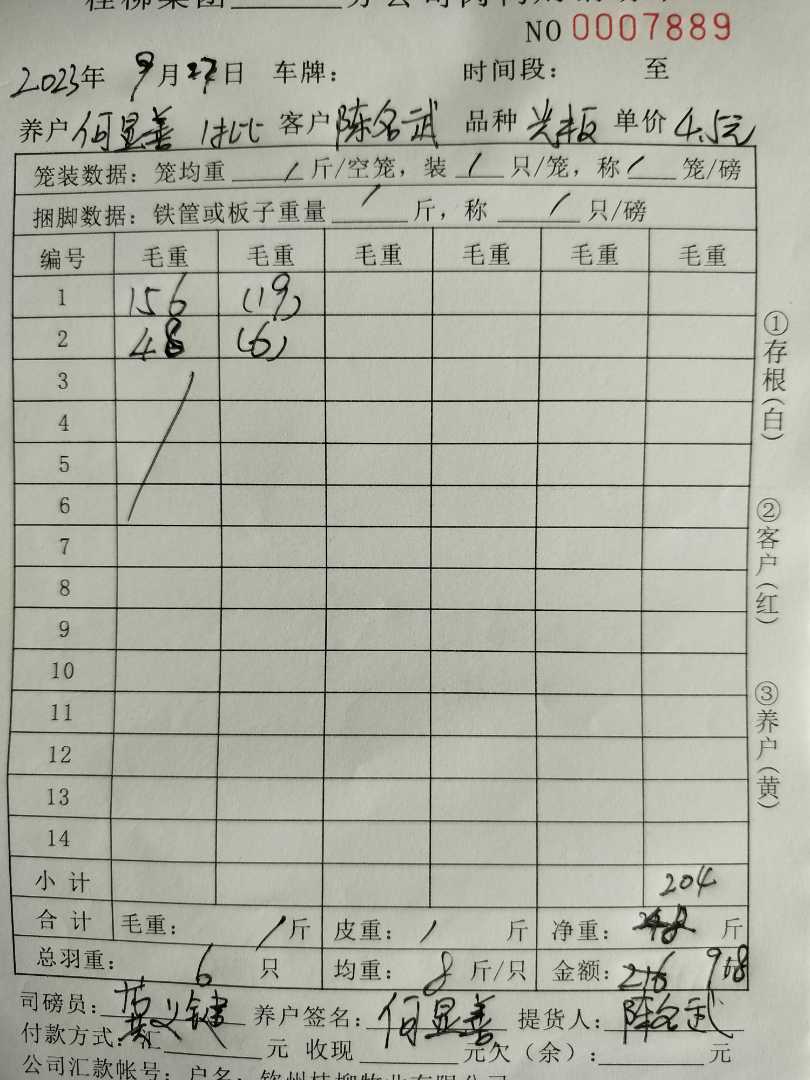 NO 0007889
2023年 9月27日 车牌： 时间段： 至
养户 何显善 客户 陈名武 品种 单价 4.5元
笼装数据：笼均重 / 斤/空笼，装 / 只/笼，称 / 笼/磅
捆脚数据：铁筐或板子重量 / 斤，称 / 只/磅
编号 毛重 毛重 毛重 毛重 毛重 毛重
1 156 (19)
2 48 (6)
3
4
5
6
7
8
9
10
11
12
13
14
小计 204
合计 毛重： / 斤 皮重： / 斤 净重： 斤
总羽重： 6 只 均重： 8 斤/只 金额：216 968
司磅员： 养户签名：何显善 提货人：陈名武
付款方式：汇 元 收现 元欠（余）： 元
公司汇款帐号：户名：钦州桂柳牧业有限公司
①存根（白）
②客户（红）
③养户（黄）